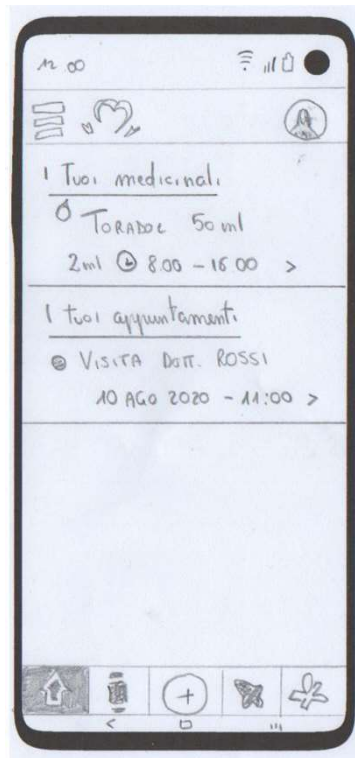 12 00
I Tuoi medicinali
TORADOL 50 ml
2ml 8.00 - 16 00 >
I tuoi appuntamenti
VISITA DOTT. ROSSI
10 AGO 2020 - 11:00 >